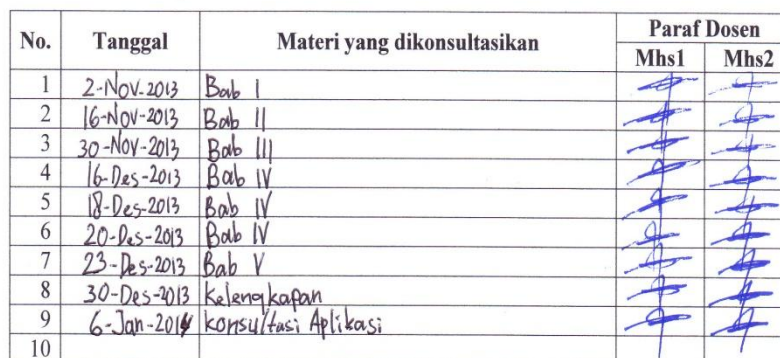 No. Tanggal Materi yang dikonsultasikan Paraf Dosen
Mhs1 Mhs2
1 2-Nov-2013 Bab I
2 16-Nov-2013 Bab II
3 30-Nov-2013 Bab III
4 16-Des-2013 Bab IV
5 18-Des-2013 Bab IV
6 20-Des-2013 Bab IV
7 23-Des-2013 Bab V
8 30-Des-2013 Kelengkapan
9 6-Jan-2014 konsultasi Aplikasi
10